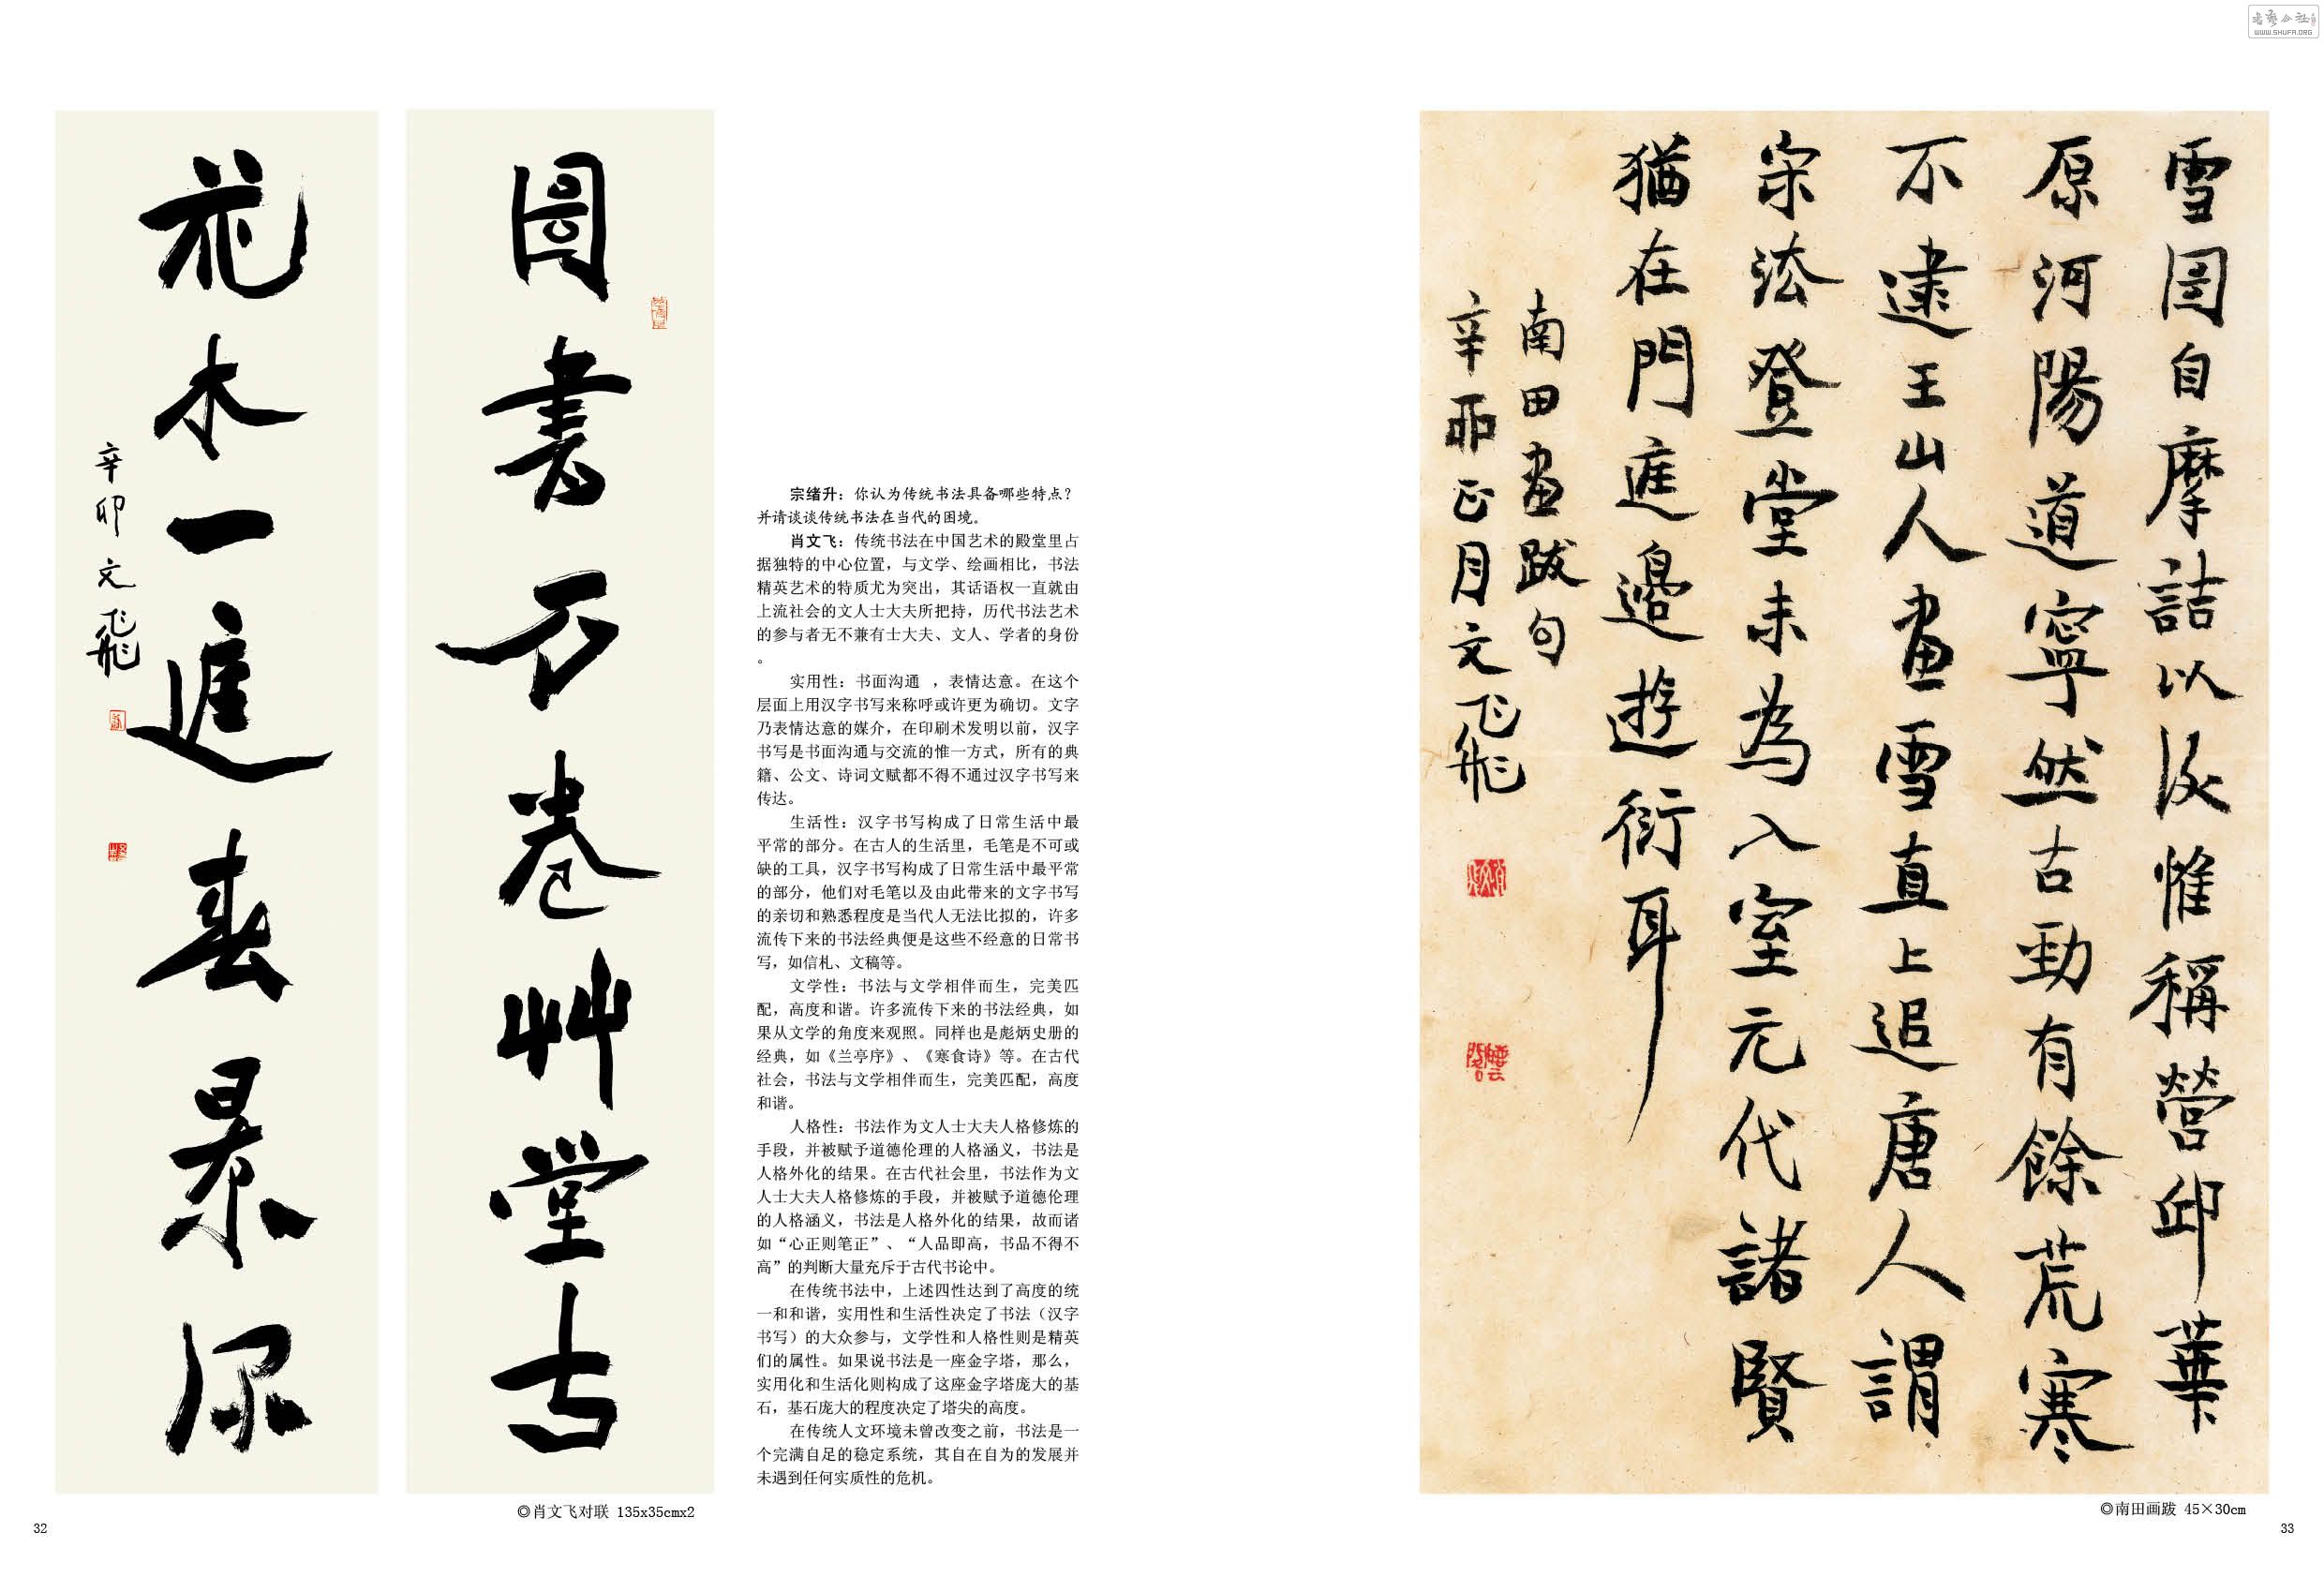 圖書万卷艸堂古
花木一庭春景深
辛卯 文飛
宗绪升：你认为传统书法具备哪些特点？
并请谈谈传统书法在当代的困境。
肖文飞：传统书法在中国艺术的殿堂里占
据独特的中心位置，与文学、绘画相比，书法
精英艺术的特质尤为突出，其话语权一直就由
上流社会的文人士大夫所把持，历代书法艺术
的参与者无不兼有士大夫、文人、学者的身份
。
实用性：书面沟通 ，表情达意。在这个
层面上用汉字书写来称呼或许更为确切。文字
乃表情达意的媒介，在印刷术发明以前，汉字
书写是书面沟通与交流的惟一方式，所有的典
籍、公文、诗词文赋都不得不通过汉字书写来
传达。
生活性：汉字书写构成了日常生活中最
平常的部分。在古人的生活里，毛笔是不可或
缺的工具，汉字书写构成了日常生活中最平常
的部分，他们对毛笔以及由此带来的文字书写
的亲切和熟悉程度是当代人无法比拟的，许多
流传下来的书法经典便是这些不经意的日常书
写，如信札、文稿等。
文学性：书法与文学相伴而生，完美匹
配，高度和谐。许多流传下来的书法经典，如
果从文学的角度来观照。同样也是彪炳史册的
经典，如《兰亭序》、《寒食诗》等。在古代
社会，书法与文学相伴而生，完美匹配，高度
和谐。
人格性：书法作为文人士大夫人格修炼的
手段，并被赋予道德伦理的人格涵义，书法是
人格外化的结果。在古代社会里，书法作为文
人士大夫人格修炼的手段，并被赋予道德伦理
的人格涵义，书法是人格外化的结果，故而诸
如“心正则笔正”、“人品即高，书品不得不
高”的判断大量充斥于古代书论中。
在传统书法中，上述四性达到了高度的统
一和和谐，实用性和生活性决定了书法（汉字
书写）的大众参与，文学性和人格性则是精英
们的属性。如果说书法是一座金字塔，那么，
实用化和生活化则构成了这座金字塔庞大的基
石，基石庞大的程度决定了塔尖的高度。
在传统人文环境未曾改变之前，书法是一
个完满自足的稳定系统，其自在自为的发展并
未遇到任何实质性的危机。
◎肖文飞对联 135x35cmx2
32
雪圖自摩詰以後惟稱營邱華
原河陽道寧然古勁有餘荒寒
不逮王山人畫雪直上追唐人謂
宋法登堂未為入室元代諸賢
猶在門庭邊遊衍耳
南田畫跋句
辛卯正月文飛
◎南田画跋 45×30cm
33
WWW.SHUFA.ORG